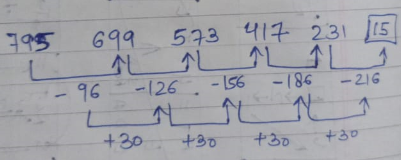 795 699 573 417 231 15
-96 -126 -156 -186 -216
+30 +30 +30 +30